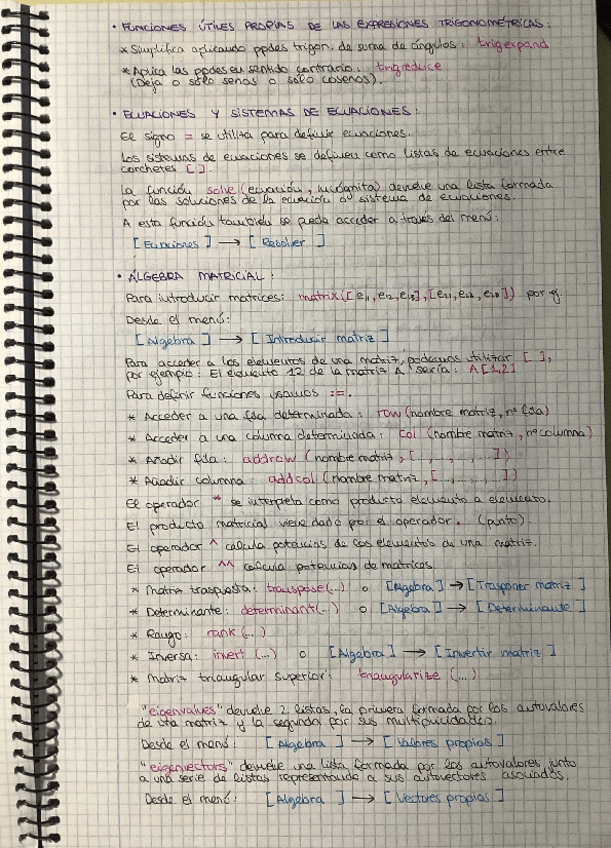 • FUNCIONES ÚTILES PROPIAS DE LAS EXPRESIONES TRIGONOMÉTRICAS:
* Simplifica aplicando ppdes trigon. de suma de ángulos: trigexpand
* Aplica las ppdes en sentido contrario: trigreduce
(Deja o solo senos o solo cosenos).
• ECUACIONES Y SISTEMAS DE ECUACIONES:
El signo = se utiliza para definir ecuaciones.
Los sistemas de ecuaciones se definen como listas de ecuaciones entre
corchetes [ ].
La función solve (ecuación, incógnita) devuelve una lista formada
por las soluciones de la ecuación o sistema de ecuaciones.
A esta función también se puede acceder a través del menú:
[Ecuaciones] → [Resolver]
• ÁLGEBRA MATRICIAL:
Para introducir matrices: matrix([e11,e12,e13],[e21,e22,e23]) por ej.
Desde el menú:
[Algebra] → [Introducir matriz]
Para acceder a los elementos de una matriz, podemos utilizar [ ],
por ejemplo: El elemento 12 de la matriz A sería: A[1,2]
Para definir funciones usamos :=.
* Acceder a una fila determinada: row (nombre matriz, nº fila)
* Acceder a una columna determinada: col (nombre matriz, nº columna)
* Añadir fila: addrow (nombre matriz, [..., ..., ...])
* Añadir columna: addcol (nombre matriz, [..., ..., ...])
El operador * se interpreta como producto elemento a elemento.
El producto matricial viene dado por el operador . (punto).
El operador ^ calcula potencias de los elementos de una matriz.
El operador ^^ calcula potencias de matrices.
* Matriz traspuesta: transpose(..) o [Algebra] → [Trasponer matriz]
* Determinante: determinant(..) o [Algebra] → [Determinante]
* Rango: rank (...)
* Inversa: invert (...) o [Algebra] → [Invertir matriz]
* Matriz triangular superior: triangularize (...)
"eigenvalues" devuelve 2 listas, la primera formada por los autovalores
de una matriz y la segunda por sus multiplicidades.
Desde el menú: [Algebra] → [Valores propios]
"eigenvectors" devuelve una lista formada por los autovalores junto
a una serie de listas representando a sus autovectores asociados.
Desde el menú: [Algebra] → [Vectores propios]